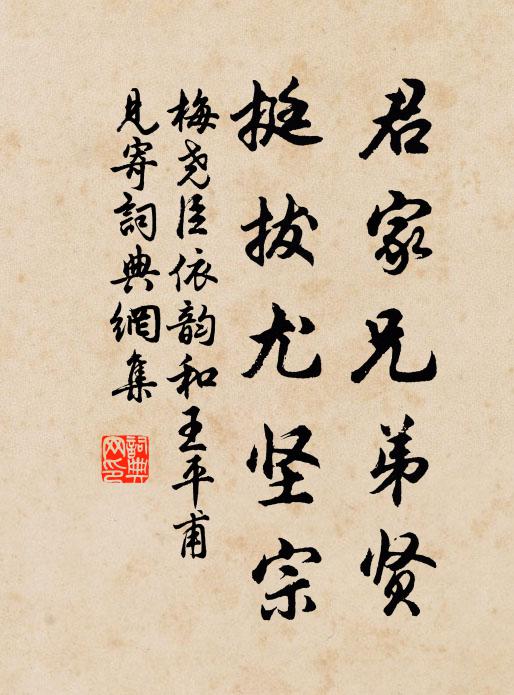 君家兄弟贤
挺拔尤坚宗
梅尧臣依韵和王平甫
見寄詞典網集
詞典
网印